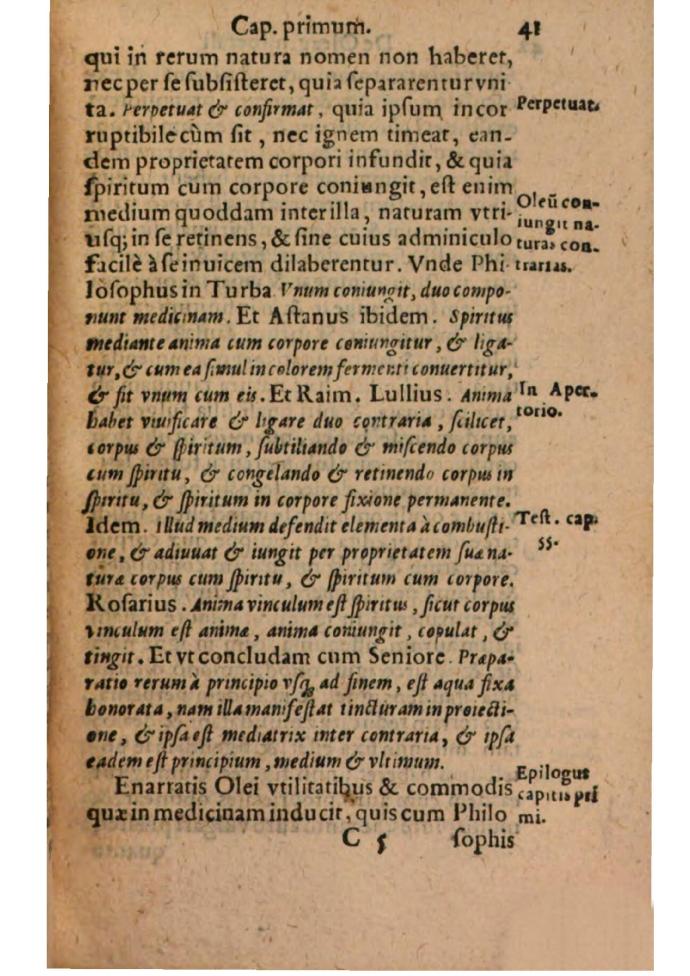 Cap. primum. 41
qui in rerum natura nomen non haberet,
nec per ſe ſubſiſteret, quia ſepararentur vni
ta. Perpetuat & confirmat, quia ipſum incor
ruptibile cùm ſit, nec ignem timeat, ean-
dem proprietatem corpori infundit, & quia
ſpiritum cum corpore coniungit, eſt enim
medium quoddam inter illa, naturam vtri-
uſq; in ſe retinens, & ſine cuius adminiculo
facilè à ſe inuicem dilaberentur. Vnde Phi
loſophus in Turba Vnum coniungit, duo compo-
nunt medicinam. Et Aſtanus ibidem. Spiritus
mediante anima cum corpore coniungitur, & liga-
tur, & cum ea ſimul in colorem fermenti conuertitur,
& fit vnum cum eis. Et Raim. Lullius. Anima
habet viuificare & ligare duo contraria, ſcilicet,
corpus & ſpiritum, ſubtiliando & miſcendo corpus
cum ſpiritu, & congelando & retinendo corpus in
ſpiritu, & ſpiritum in corpore fixione permanente.
Idem. illud medium defendit elementa à combuſti-
one, & adiuuat & iungit per proprietatem ſuæ na-
turæ corpus cum ſpiritu, & ſpiritum cum corpore.
Roſarius. Anima vinculum eſt ſpiritus, ſicut corpus
vinculum eſt animæ, anima coniungit, copulat, &
tingit. Et vt concludam cum Seniore. Præpa-
ratio rerum à principio vſq; ad finem, eſt aqua fixa
honorata, nam illa manifeſtat tincturam in proiecti-
one, & ipſa eſt mediatrix inter contraria, & ipſa
eadem eſt principium, medium & vltimum.
Enarratis Olei vtilitatibus & commodis
quæ in medicinam inducit, quis cum Philo
C 5 ſophis
Perpetuat.
Oleū con-
iungit na-
turas con-
trarias.
In Aper-
torio.
Teſt. cap.
55.
Epilogus
capitis pri
mi.